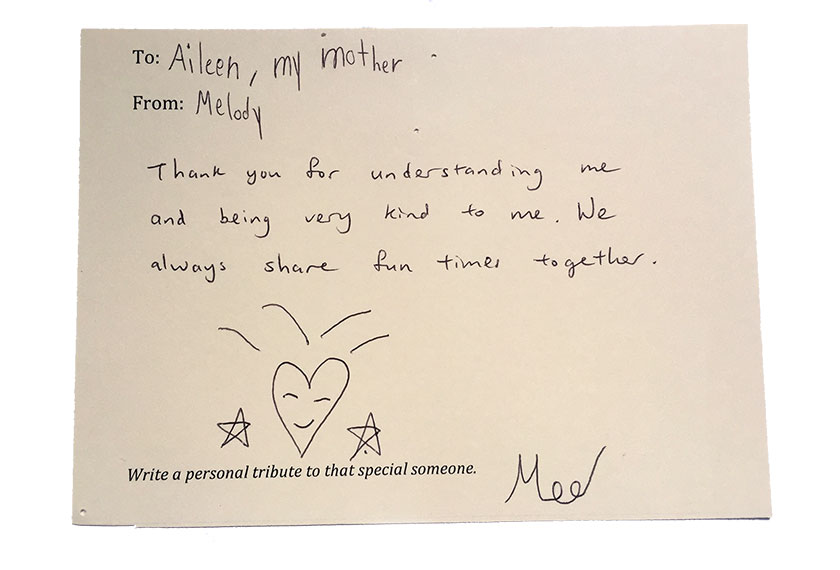 To: Aileen, my mother
From: Melody
Thank you for understanding me
and being very kind to me. We
always share fun times together.
Write a personal tribute to that special someone.